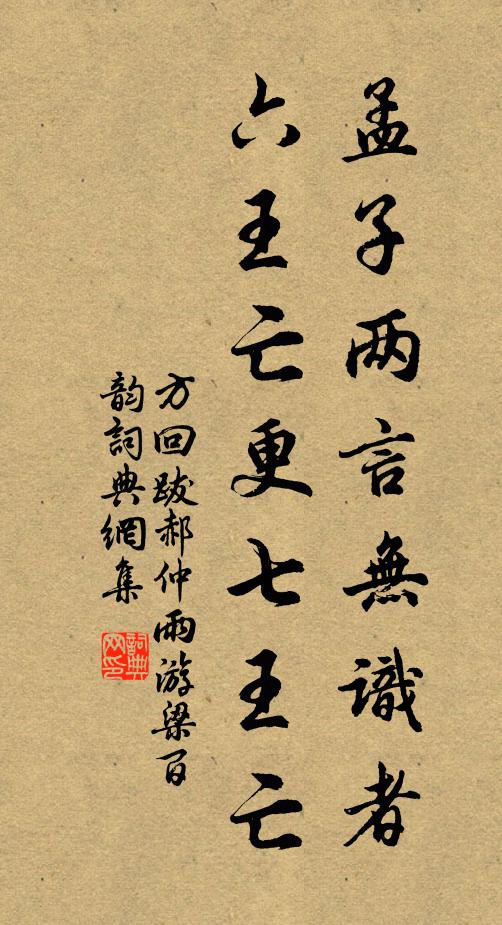 孟子两言無識者
六王亡更七王亡
方回跋郝仲雨游梁百
韵詞典網集
詞典
网印